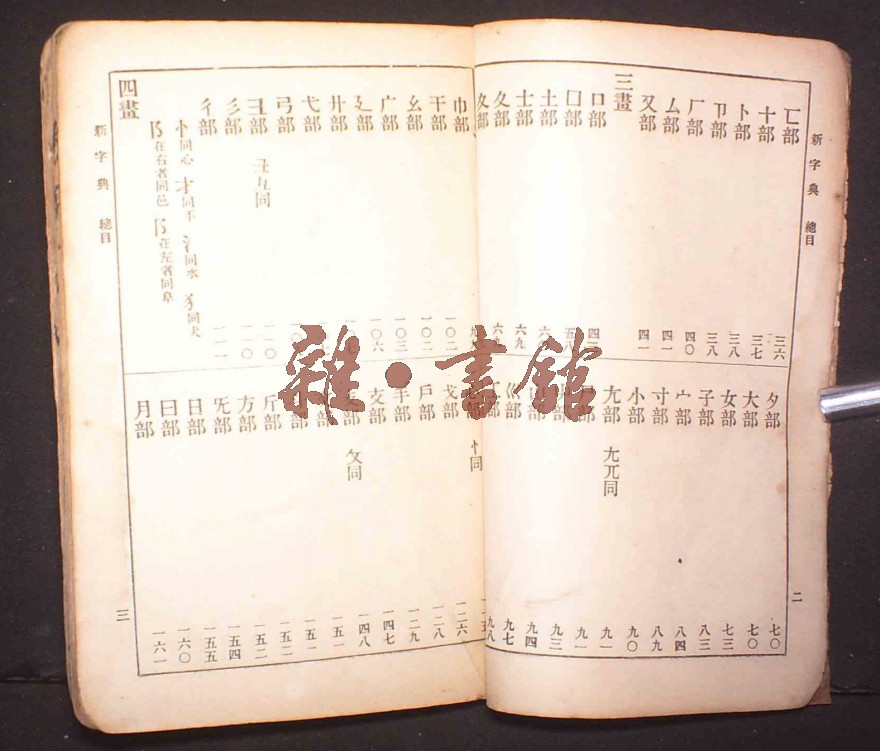 新字典 總目
二
匸部 三六
十部 三七
卜部 三八
卩部 三八
厂部 四〇
厶部 四一
又部 四一
三畫
口部
囗部 五八
土部
士部 六九
夂部
夊部
夕部 七〇
大部 七〇
女部 七三
子部 八三
宀部 八四
寸部 八九
小部 九〇
尢部 尣兀同 九一
九一
九三
九四
巛部 九七
九八
巾部 一〇二
干部 一〇二
幺部 一〇三
广部 一〇六
廴部
廾部
弋部
弓部
彐部 彑同 一一〇
彡部 一一〇
彳部 一一一
忄同心 扌同手 氵同水 犭同犬
阝在右者同邑 阝在左者同阜
四畫
忄同
戈部 一二六
戶部 一二八
手部 一二九
支部 一四七
攵同 一四八
一五一
一五一
斤部 一五二
方部 一五二
旡部 一五四
日部 一五五
曰部 一六〇
月部 一六一
新字典 總目
三
雜·書館